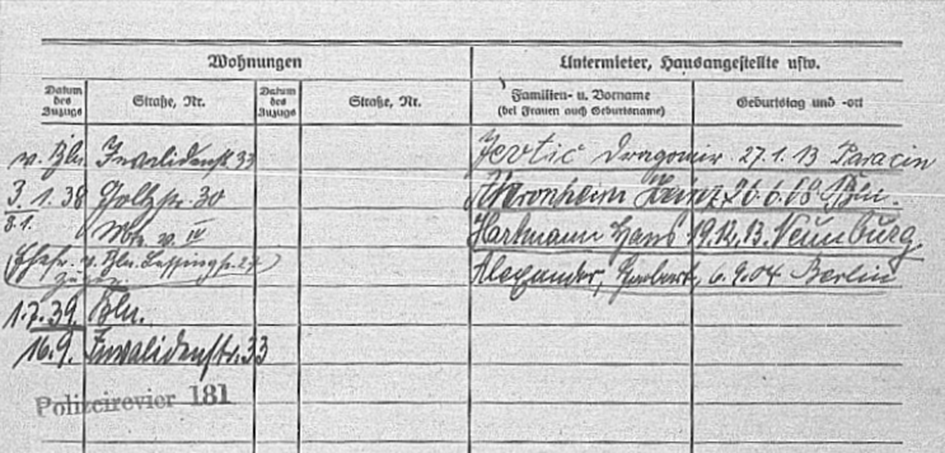 Wohnungen
Untermieter, Hausangestellte usw.
Datum des Zuzugs
Straße, Nr.
Datum des Zuzugs
Straße, Nr.
Familien- u. Vorname
(bei Frauen auch Geburtsname)
Geburtstag und -ort
v. Bln. Invalidenstr. 33
3.1.38 Goltzstr. 30
8.1.
v. IV
(Ehefr. v. Bln. Lessingstr. 27
1.7.39 Bln.
16.9. Invalidenstr. 33
Polizeirevier 181
Jevtic Dragomir 27.1.13 Paracin
Heinz 26.6.08 Bln.
Hartmann Hans 19.12.13. Neunburg
Alexander, 6.9.04 Berlin